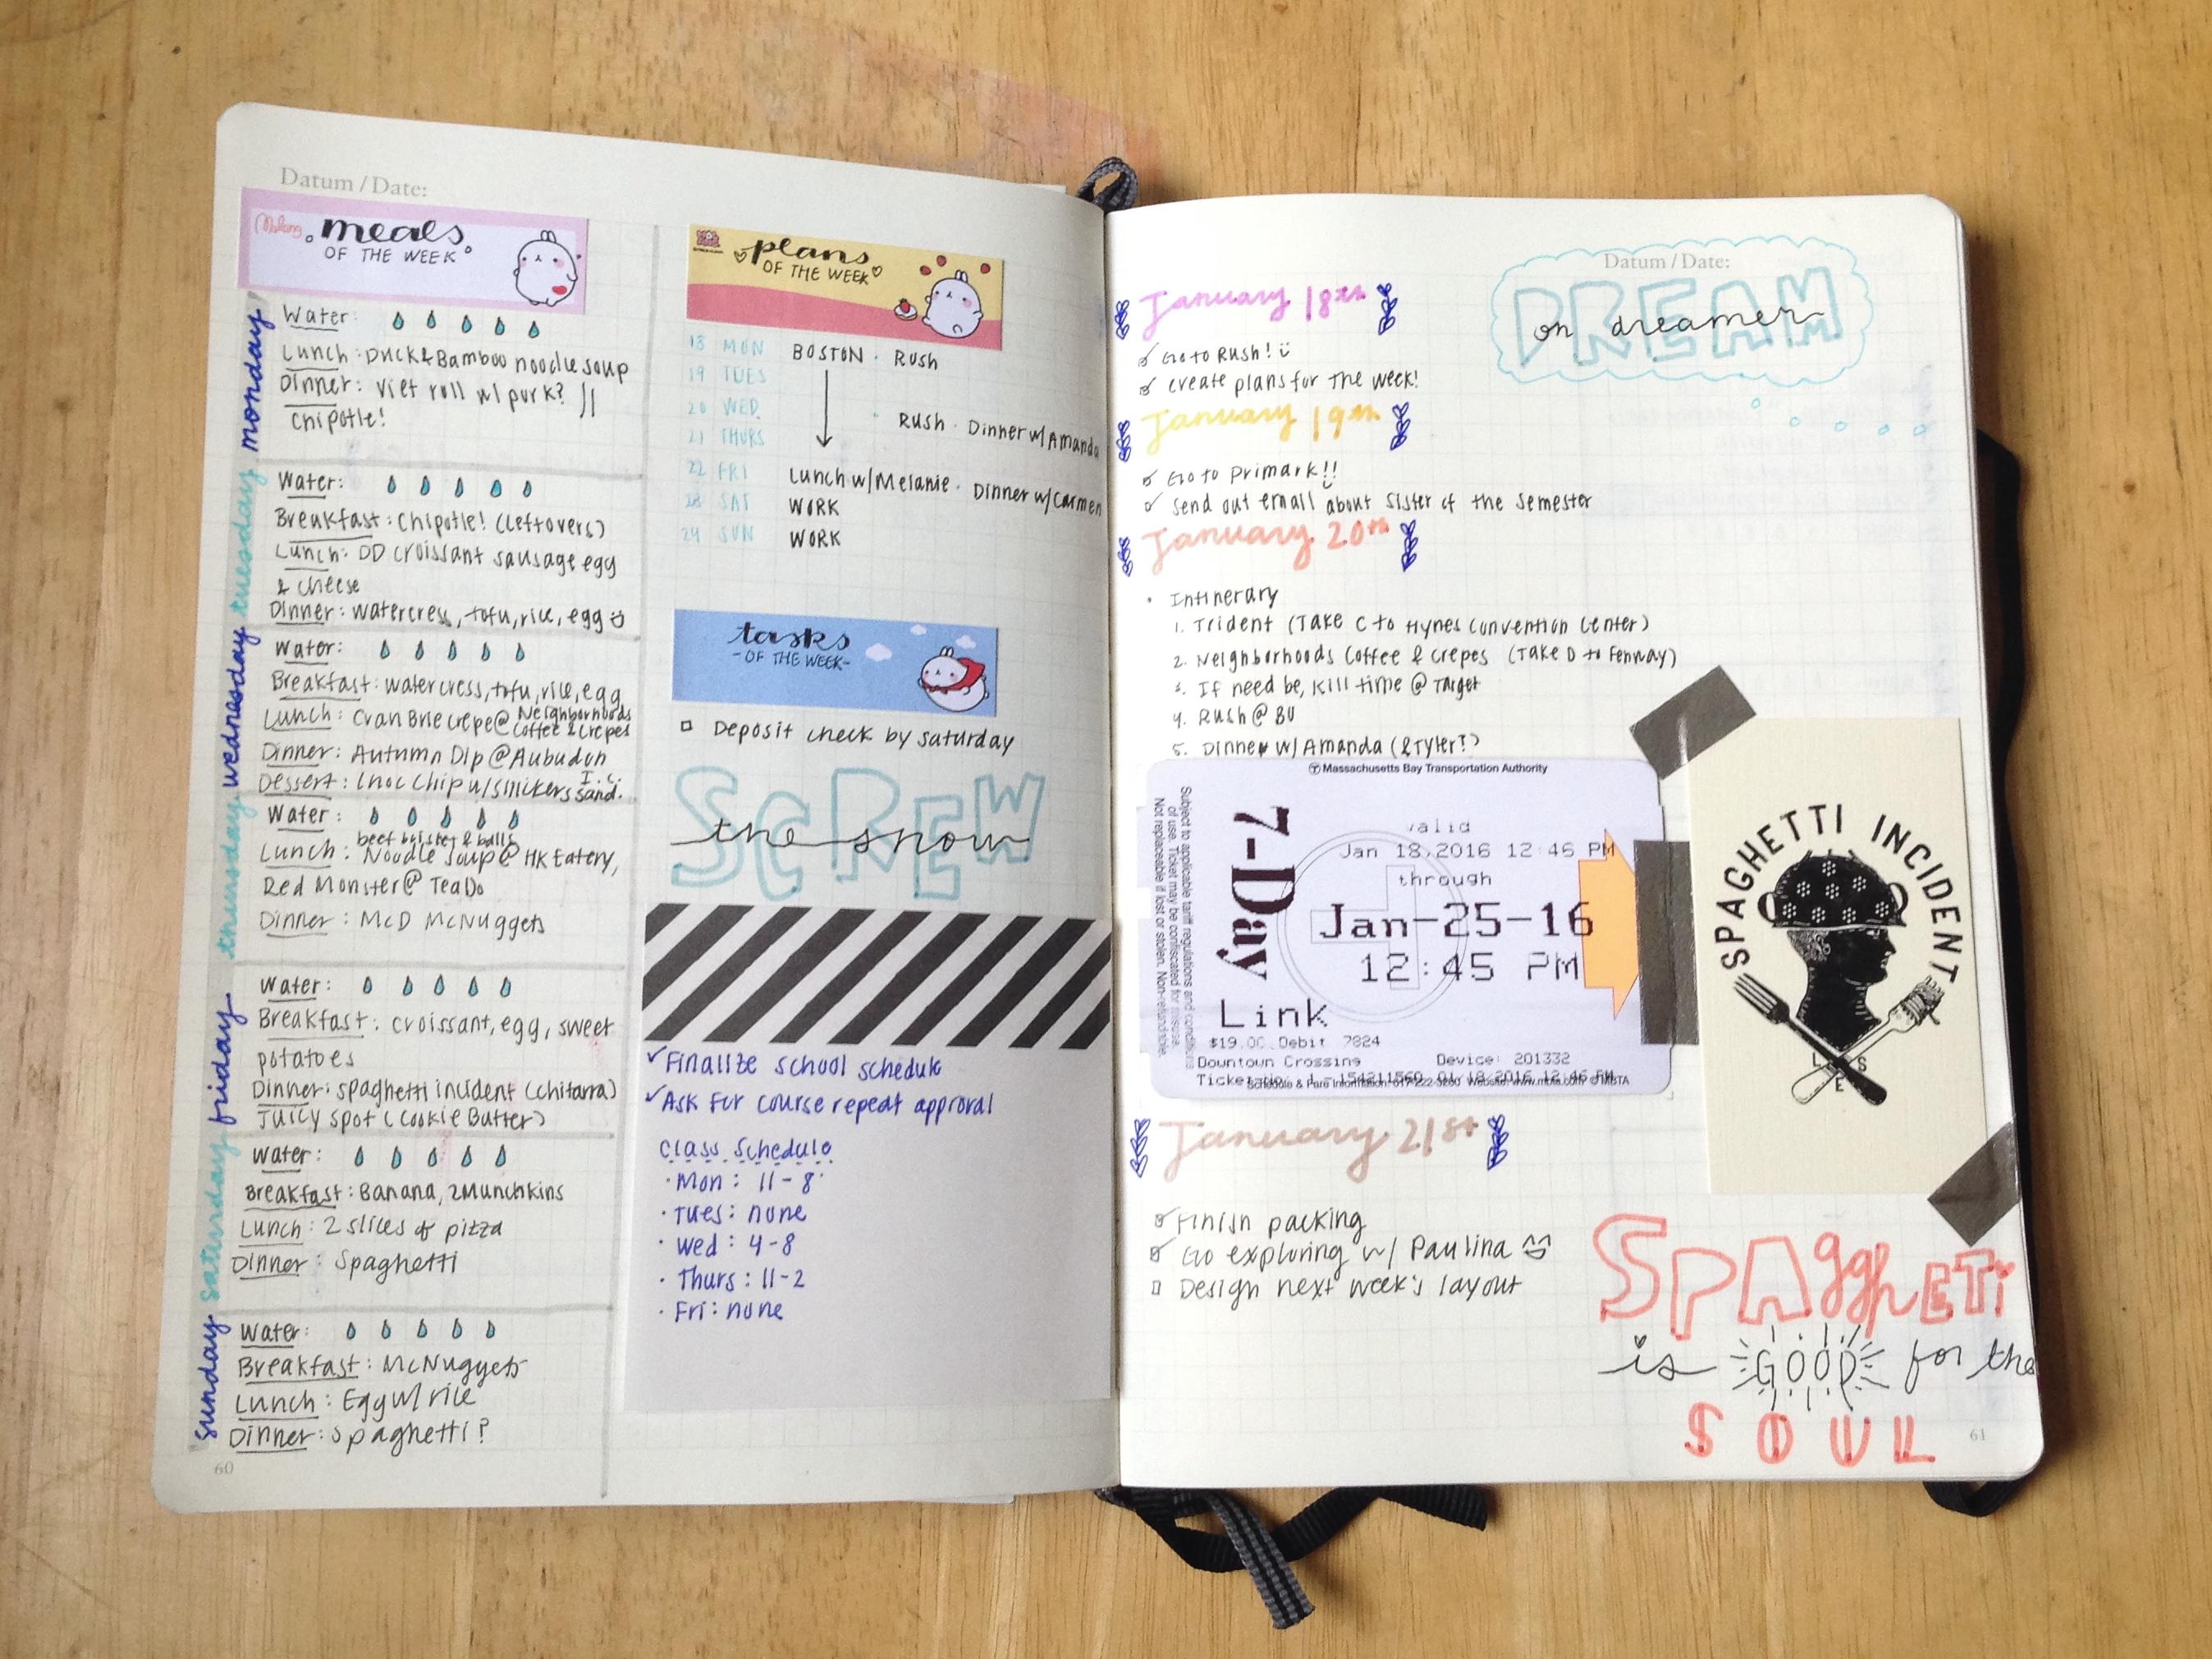 Datum / Date:
Molang
meals
OF THE WEEK
monday
Water:
Lunch: Duck & Bamboo noodle soup
Dinner: Viet roll w/ pork? //
Chipotle!
tuesday
Water:
Breakfast: Chipotle! (leftovers)
Lunch: DD croissant sausage egg
& cheese
Dinner: watercress, tofu, rice, egg
wednesday
Water:
Breakfast: watercress, tofu, rice, egg
Lunch: Cran Brie crepe @ Neighborhoods
Coffee & Crepes
Dinner: Autumn Dip @ Aubudon
Dessert: Choc Chip w/ snikers I.C.
sand.
thursday
Water:
beef brisket & balls
Lunch: Noodle soup @ HK Eatery,
Red Monster @ TeaDo
Dinner: McD McNuggets
friday
Water:
Breakfast: croissant, egg, sweet
potatoes
Dinner: spaghetti incident (chitarra)
Juicy Spot (Cookie Butter)
saturday
Water:
Breakfast: Banana, 2 Munchkins
Lunch: 2 slices of pizza
Dinner: Spaghetti
sunday
Water:
Breakfast: McNuggets
Lunch: Egg w/ rice
Dinner: spaghetti?
60
plans
OF THE WEEK
18 MON BOSTON · Rush
19 TUES
20 WED · Rush · Dinner w/ Amanda
21 THURS
22 FRI Lunch w/ Melanie · Dinner w/ Carmen
23 SAT WORK
24 SUN WORK
tasks
-OF THE WEEK-
Deposit check by saturday
SCREW
the snow
Finalize school schedule
Ask for course repeat approval
Class Schedule
· Mon: 11-8
· Tues: none
· Wed: 4-8
· Thurs: 11-2
· Fri: none
Datum / Date:
DREAM
on dreamer
January 18th
Go to Rush!
create plans for the week!
January 19th
Go to Primark!!
Send out email about Sister of the Semester
January 20th
· Intinerary
1. Trident (Take C to Hynes Convention Center)
2. Neighborhoods Coffee & Crepes (Take D to Fenway)
3. If need be, kill time @ Target
4. Rush @ BU
5. Dinner w/ Amanda (& Tyler?)
Massachusetts Bay Transportation Authority
Subject to applicable tariff regulations and conditions
of use. Ticket may be confiscated for misuse.
Not replaceable if lost or stolen. Non-refundable.
7-Day
valid
Jan 18,2016 12:46 PM
through
Jan-25-16
12:45 PM
Link
$19.00 Debit 7824
Downtown Crossing Device: 201332
SPAGHETTI INCIDENT
L E S
January 21st
Finish packing
Go exploring w/ Paulina
Design next week's layout
SPAgghETTi
is GOOD for the
SOUL
61